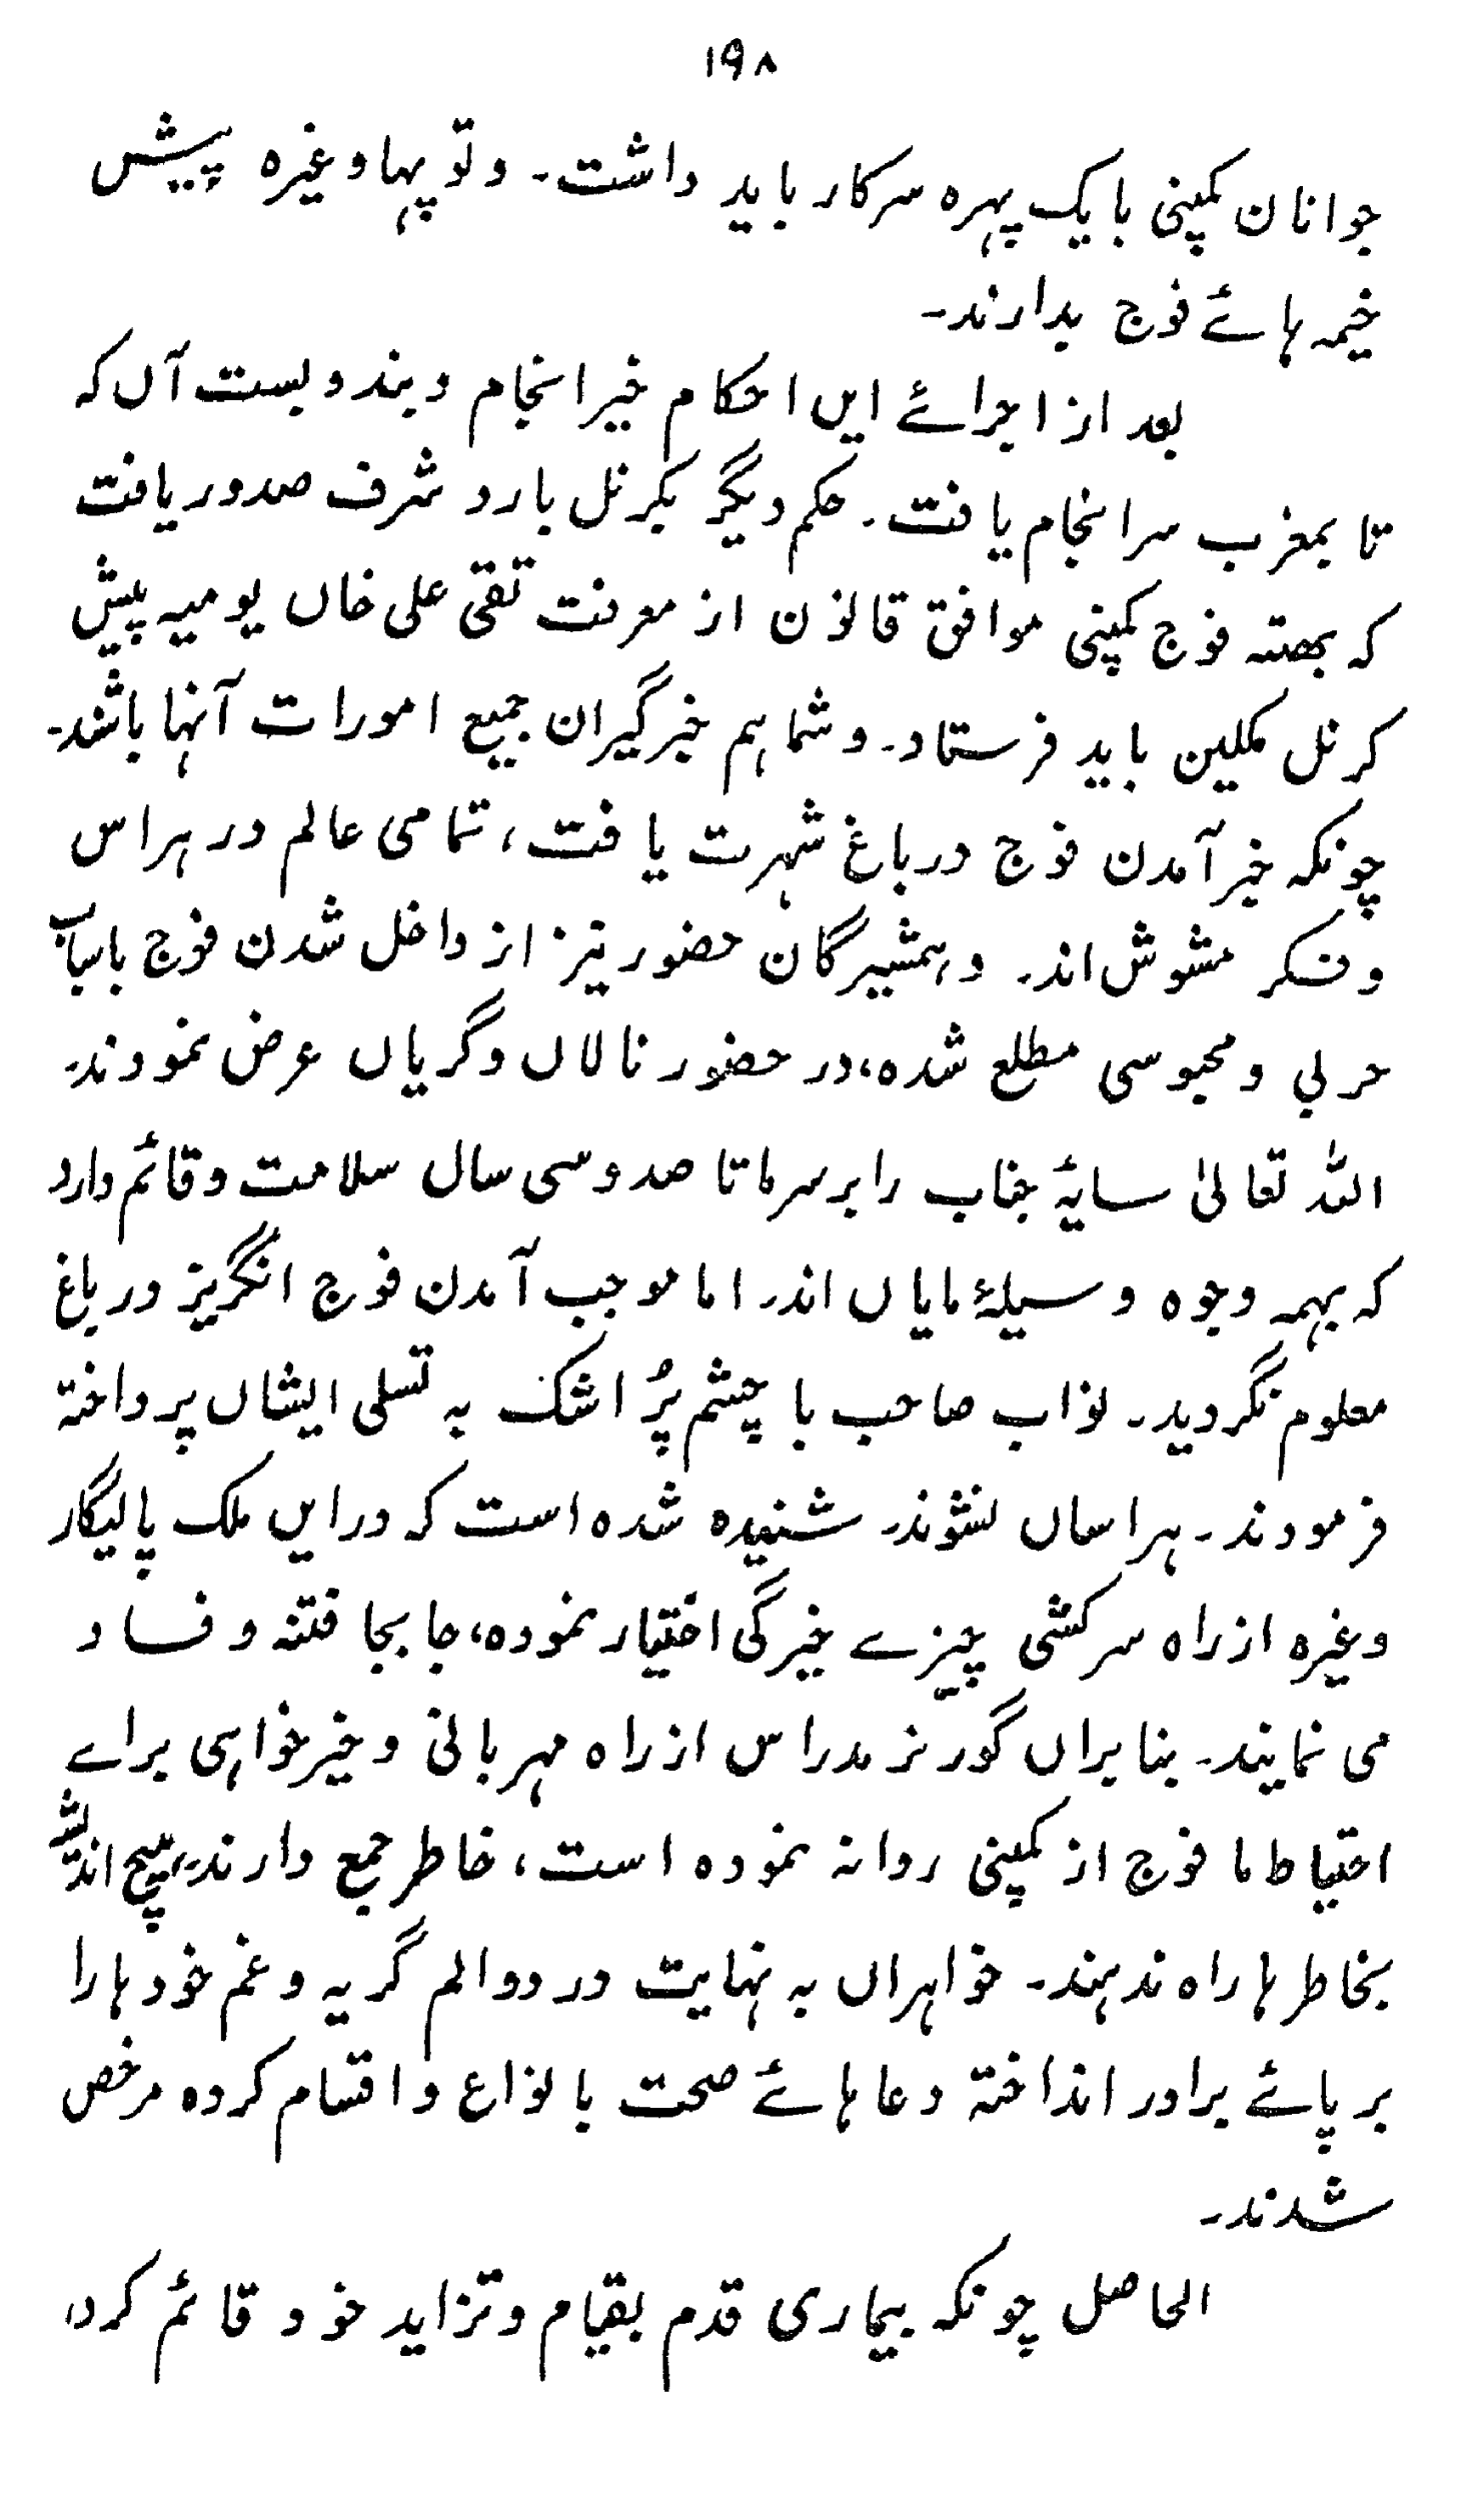 ۱۹۸
جوانان کمپنی با یک پہرہ سرکار باید داشت۔ و توپہا وغیرہ پیش
خیمہ ہائے فوج بدارند۔
بعد از اجرائے ایں احکام خیر انجام و بندوبست آں کہ
تا بمغرب سرانجام یافت۔ حکم دیگر بکرنل بارد شرف صدور یافت
کہ بھتہ فوج کمپنی موافق قانون از معرفت تقی علی خاں یومیہ پیش
کرنل مکلین باید فرستاد۔ و شما ہم خبرگیران جمیع امورات آنہا باشند۔
چونکہ خبر آمدن فوج در باغ شہرت یافت، تمامی عالم در ہراس
و فکر مشوش اند۔ و ہمشیرگان حضور نیز از داخل شدن فوج باسباب
حربی و محبوسی مطلع شدہ، در حضور نالاں و گریاں عرض نمودند۔
اللہ تعالیٰ سایۂ جناب را بر سر ما تا صد و سی سال سلامت و قائم دارد
کہ بہمہ وجوہ وسیلۂ مایاں اند۔ اما موجب آمدن فوج انگریز در باغ
معلوم نگردید۔ نواب صاحب با چشم پُر اشک بہ تسلی ایشاں پرداختہ
فرمودند۔ ہراساں نشوند۔ شنیدہ شدہ است کہ در ایں ملک پالیگار
وغیرہ از راہ سرکشی چیزے خیرگی اختیار نمودہ، جا بجا فتنہ و فساد
می نمایند۔ بنا براں گورنر مدراس از راہ مہربانی و خیرخواہی براے
احتیاط ما فوج از کمپنی روانہ نمودہ است، خاطر جمع دارند، ہیچ اندیشہ
بخاطر ہا راہ ندہند۔ خواہراں بہ نہایت درد و الم گریہ و غم خود ہا را
بر پائے برادر انداختہ دعا ہائے صحت بانواع و اقسام کردہ مرخص
شدند۔
الحاصل چونکہ بیماری قدم بقیام و تزاید خود قائم کردہ